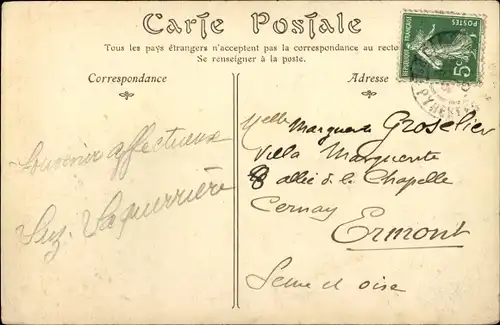 Carte Postale
Tous les pays étrangers n'acceptent pas la correspondance au recto
Se renseigner à la poste.
Correspondance
Adresse
POSTES
5c
PYRENEES
Souvenir affectueux
Suz. Laquerrière
Melle Marguerite Groselier
Villa Marguerite
8 allée de la Chapelle
Cernay
Ermont
Seine et Oise